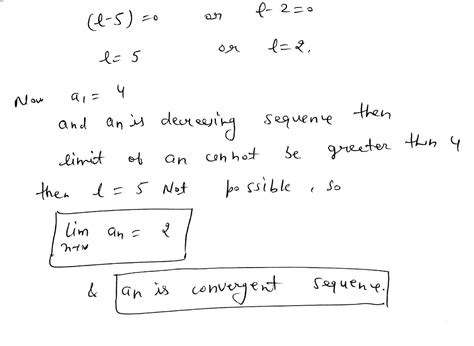 (l-5) = 0 or l-2 = 0
l = 5 or l = 2.
Now a₁ = 4
and an is decreesing sequence then
limit of an connot be greeter then 4
then l = 5 Not possible, so
lim an = 2
n→∞
& an is convergent sequence.